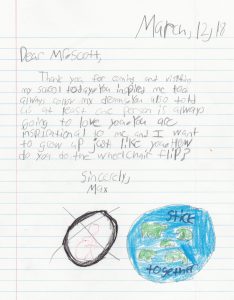 March, 12, 18
Dear Mr. Scott,
Thank you for coming and visiting
my school today. You inspired me to
always my dreams. You also told
us at least one person is always
going to love you. You are
inspirational to me and I want
to grow up just like you. How
do you do the wheelchair flip?
Sincerely,
Max
Stick
together